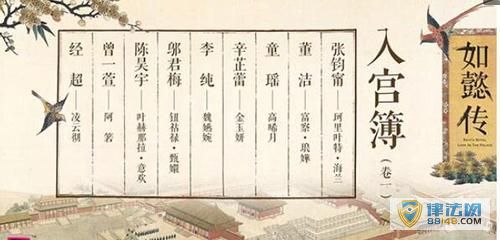 如懿传
RUYI'S ROYAL LOVE IN THE PALACE
入宫簿（卷一）
张钧甯——珂里叶特·海兰
董洁——富察·琅嬅
童瑶——高晞月
辛芷蕾——金玉妍
李纯——魏嬿婉
邬君梅——钮祜禄·甄嬛
陈昊宇——叶赫那拉·意欢
曾一萱——阿箬
经超——凌云彻
律法网
88148.com